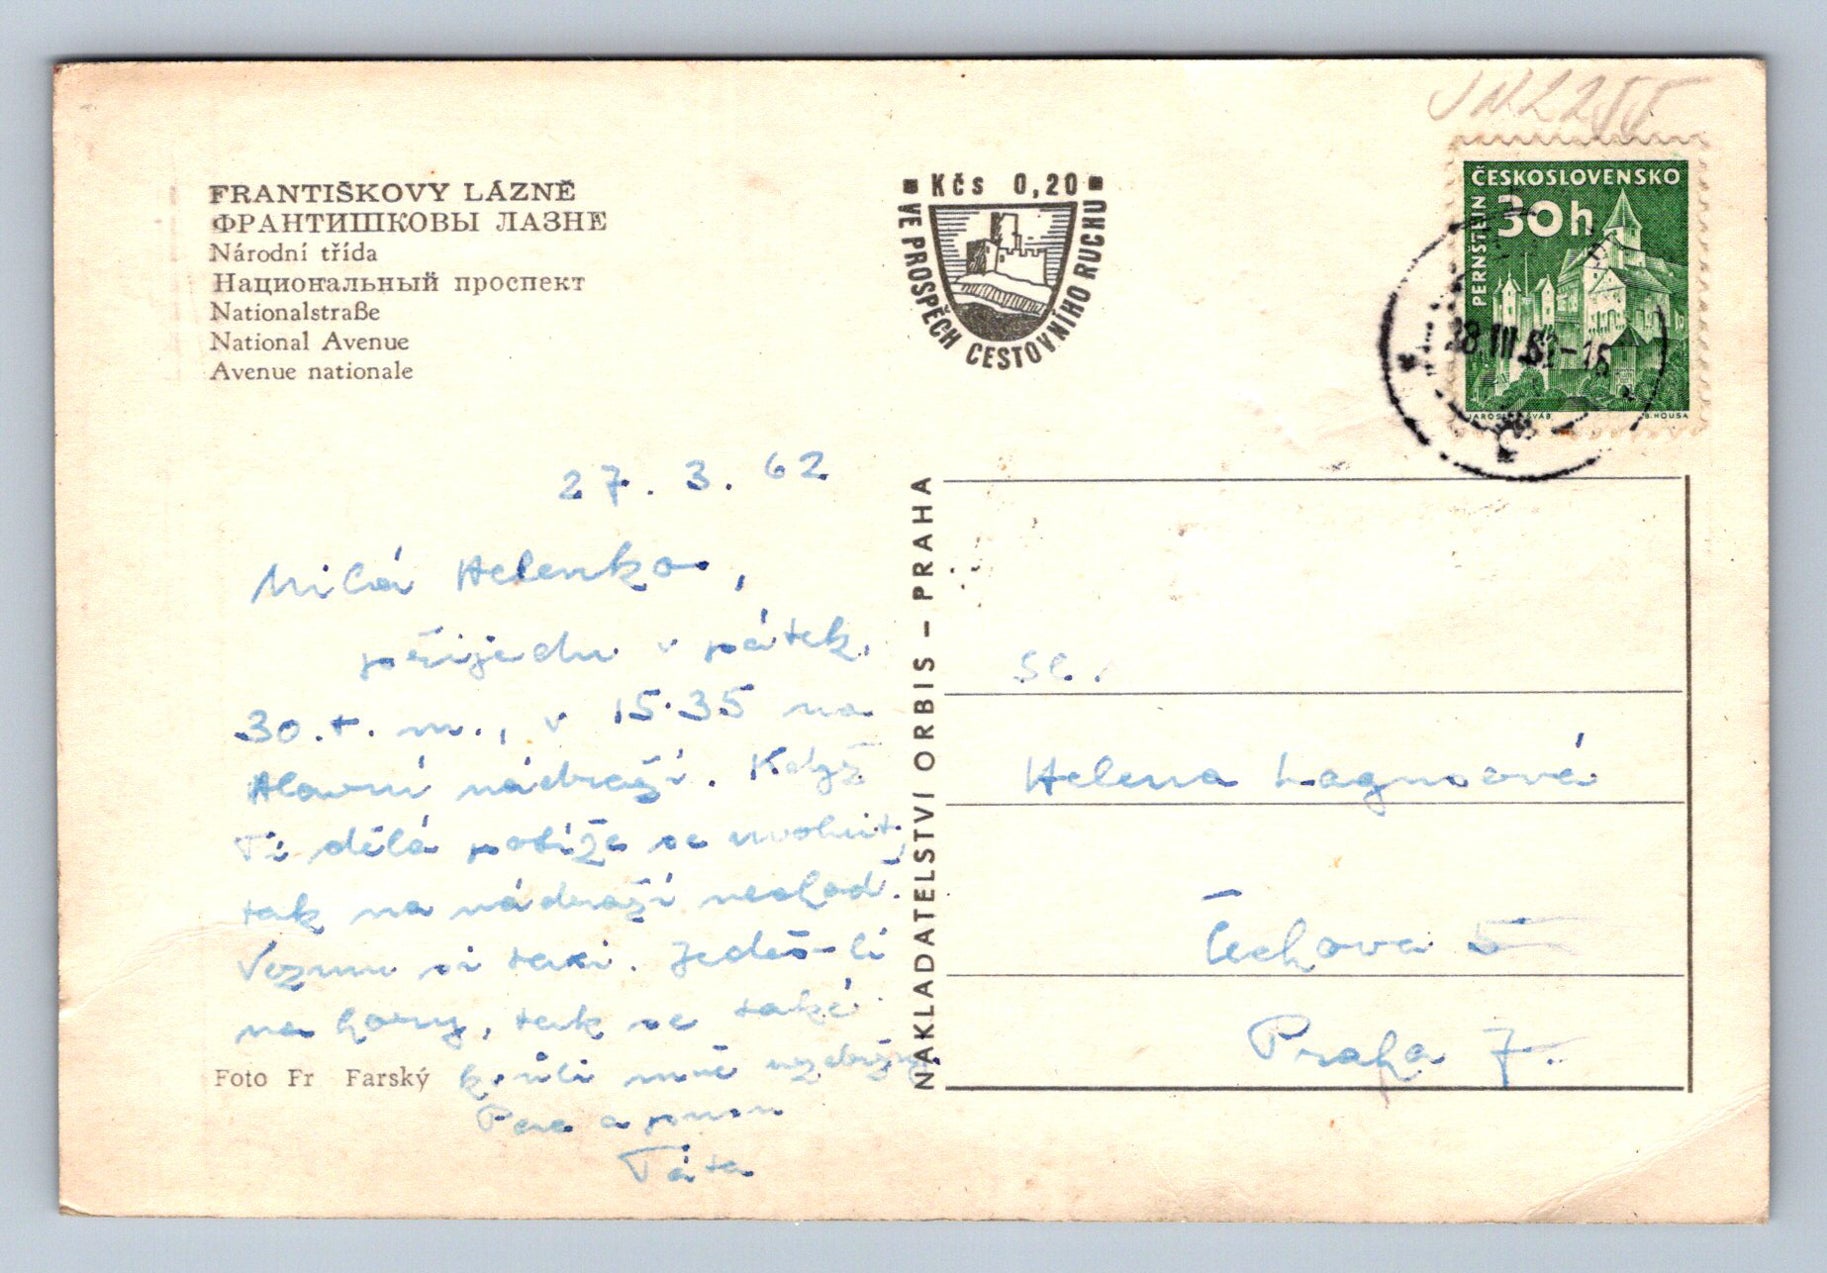 FRANTIŠKOVY LÁZNĚ
ФРАНТИШКОВЫ ЛАЗНЕ
Národní třída
Национальный проспект
Nationalstraße
National Avenue
Avenue nationale
Kčs 0,20
VE PROSPĚCH CESTOVNÍHO RUCHU
ČESKOSLOVENSKO
30h
PERNŠTEJN
B. HOUSA
27. 3. 62
Milá Helenko,
přijedu v pátek,
30. t. m., v 15.35 na
Hlavní nádraží. Když
Ti dělá potíže se uvolnit,
tak na nádraží nechoď.
Vezmu si taxi. Jedeš-li
na hory, tak se také
kvůli mně nezdržuj.
Táta
Foto Fr Farský
NAKLADATELSTVÍ ORBIS – PRAHA
Sl.
Helena
Čechova 5
Praha 7.